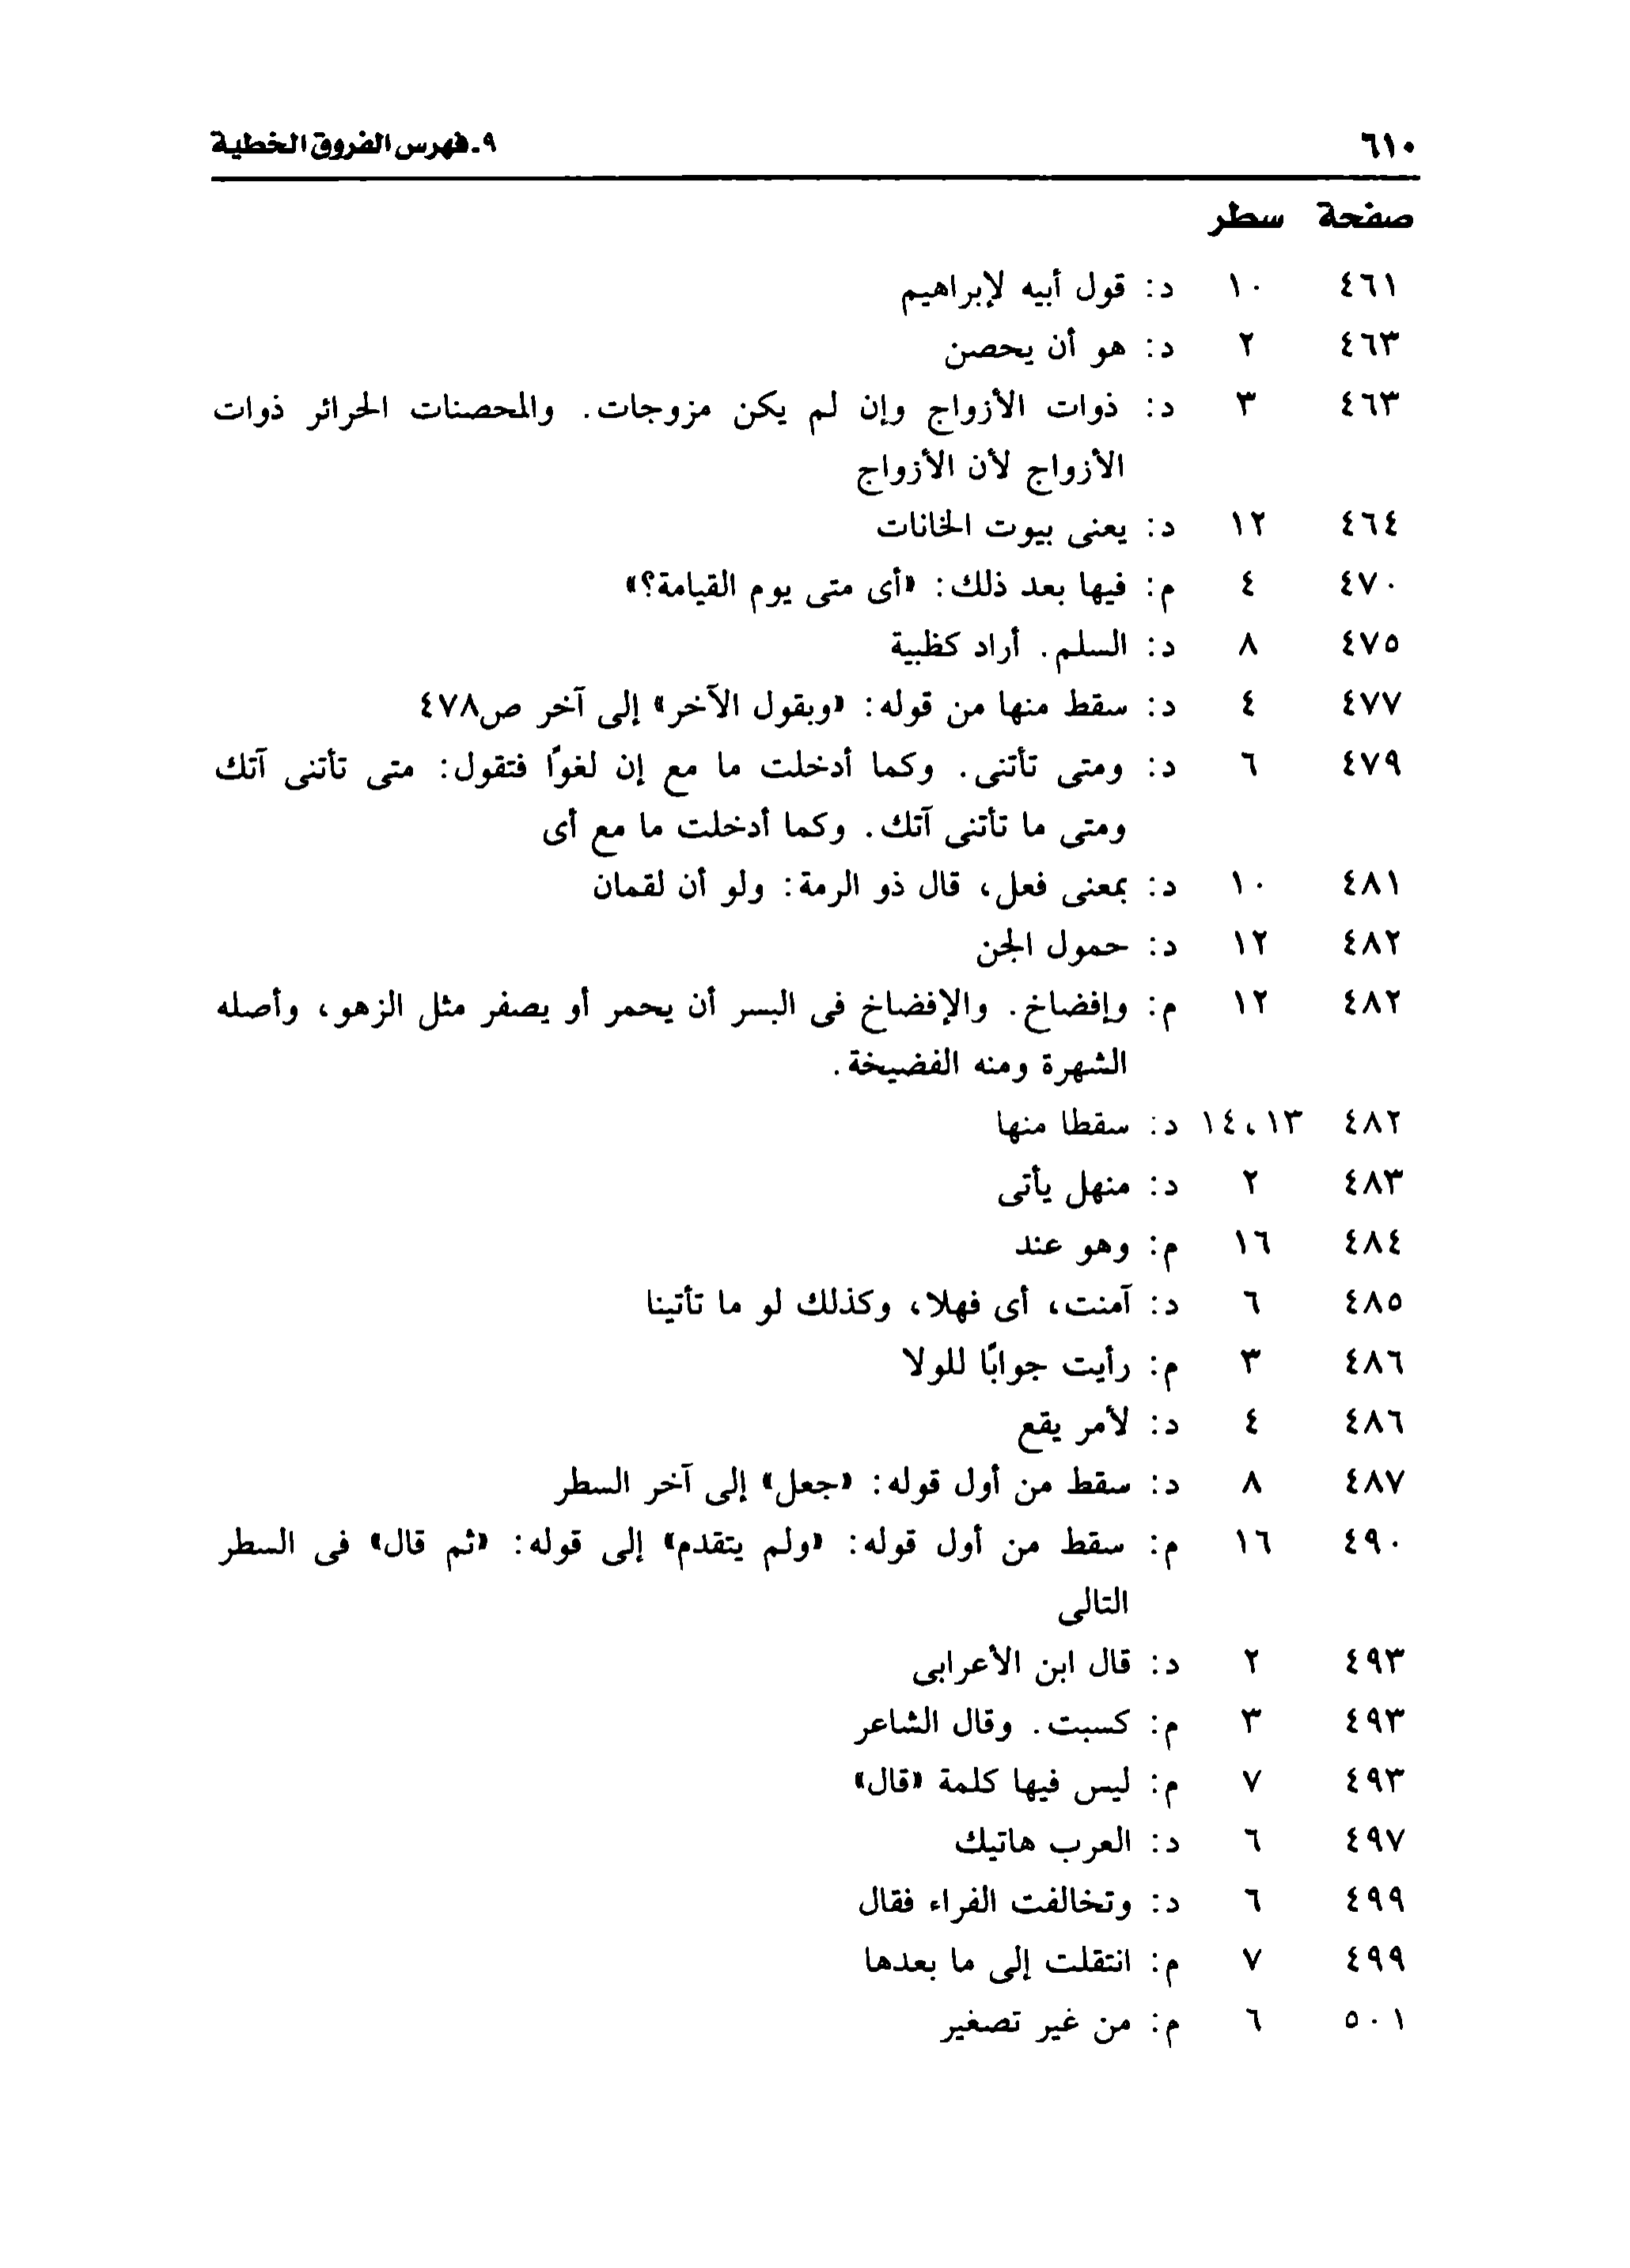 ٦١٠ ٩ـ فهرس الفروق الخطية
صفحة سطر
٤٦١ ١٠ د: قول أبيه لإبراهيم
٤٦٣ ٢ د: هو أن يحصن
٤٦٣ ٣ د: ذوات الأزواج وإن لم يكن مزوجات. والمحصنات الحرائر ذوات
الأزواج لأن الأزواج
٤٦٤ ١٢ د: يعنى بيوت الخانات
٤٧٠ ٤ م: فيها بعد ذلك: «أى متى يوم القيامة؟»
٤٧٥ ٨ د: السلم. أراد كظبية
٤٧٧ ٤ د: سقط منها من قوله: «وبقول الآخر» إلى آخر ص٤٧٨
٤٧٩ ٦ د: ومتى تأتنى. وكما أدخلت ما مع إن لغوًا فتقول: متى تأتنى آتك
ومتى ما تأتنى آتك. وكما أدخلت ما مع أى
٤٨١ ١٠ د: بمعنى فعل، قال ذو الرمة: ولو أن لقمان
٤٨٢ ١٢ د: حمول الجن
٤٨٢ ١٢ م: وإفضاخ. والإفضاخ فى البسر أن يحمر أو يصفر مثل الزهو، وأصله
الشهرة ومنه الفضيخة.
٤٨٢ ١٣، ١٤ د: سقطا منها
٤٨٣ ٢ د: منهل يأتى
٤٨٤ ١٦ م: وهو عند
٤٨٥ ٦ د: آمنت، أى فهلا، وكذلك لو ما تأتينا
٤٨٦ ٣ م: رأيت جوابًا للولا
٤٨٦ ٤ د: لأمر يقع
٤٨٧ ٨ د: سقط من أول قوله: «جعل» إلى آخر السطر
٤٩٠ ١٦ م: سقط من أول قوله: «ولم يتقدم» إلى قوله: «ثم قال» فى السطر
التالى
٤٩٣ ٢ د: قال ابن الأعرابى
٤٩٣ ٣ م: كسبت. وقال الشاعر
٤٩٣ ٧ م: ليس فيها كلمة «قال»
٤٩٧ ٦ د: العرب هاتيك
٤٩٩ ٦ د: وتخالفت الفراء فقال
٤٩٩ ٧ م: انتقلت إلى ما بعدها
٥٠١ ٦ م: من غير تصغير